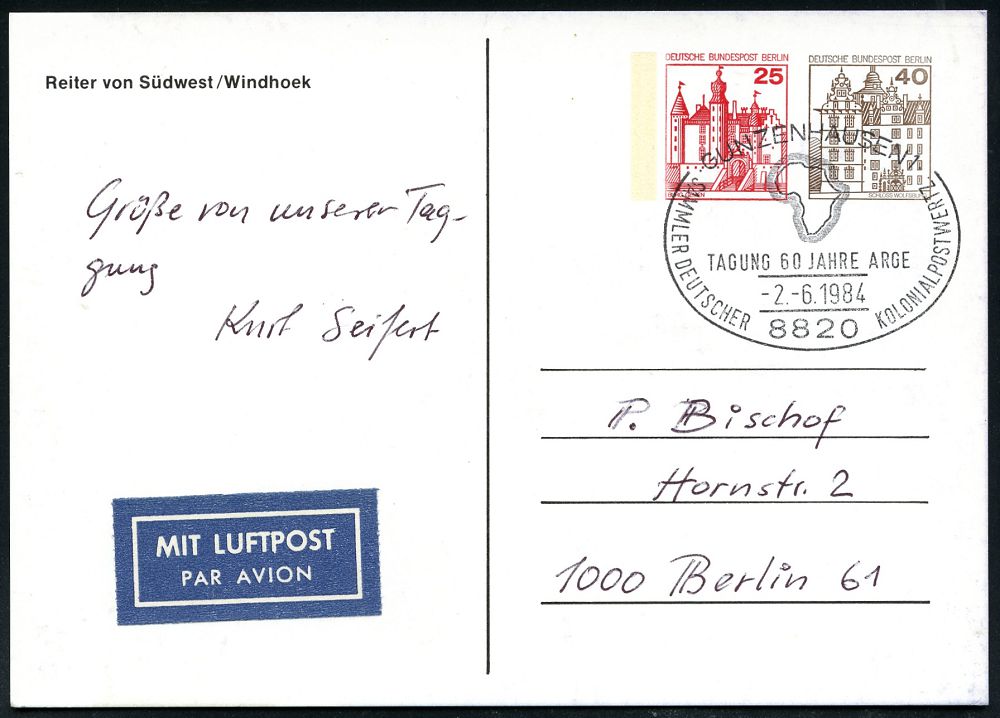 Reiter von Südwest/Windhoek
Grüße von unserer Tag-
gung
Kurt Seifert
MIT LUFTPOST
PAR AVION
DEUTSCHE BUNDESPOST BERLIN
25
DEUTSCHE BUNDESPOST BERLIN
40
GUNZENHAUSEN 1
SAMMLER DEUTSCHER KOLONIALPOSTWERTZ
TAGUNG 60 JAHRE ARGE
-2.-6.1984
8820
P. Bischof
Hornstr. 2
1000 Berlin 61